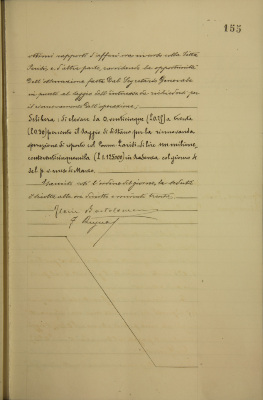 155
ottimi rapporti d'affari ora in corso colla Ditta
Pariti, e d'altra parte, considerata la opportunità
dell'attenuazione fatta dal Segretario Generale
in punto al saggio dell'interesse da richiedersi per
il rinnovamento dell'operazione;
Delibera: di elevare da 0. venticinque (0.25) a trenta
(0.30) per cento il saggio di interesse per la rinnovanda
operazione di riporto col Comm. Pariti di Lire un milione,
centoventicinquemila (L. 1.125000) in scadenza col giorno 4
del p. v. mese di Marzo.
Esaurito così l'ordine del giorno, la seduta
è sciolta alle ore diciotto e minuti trenta.